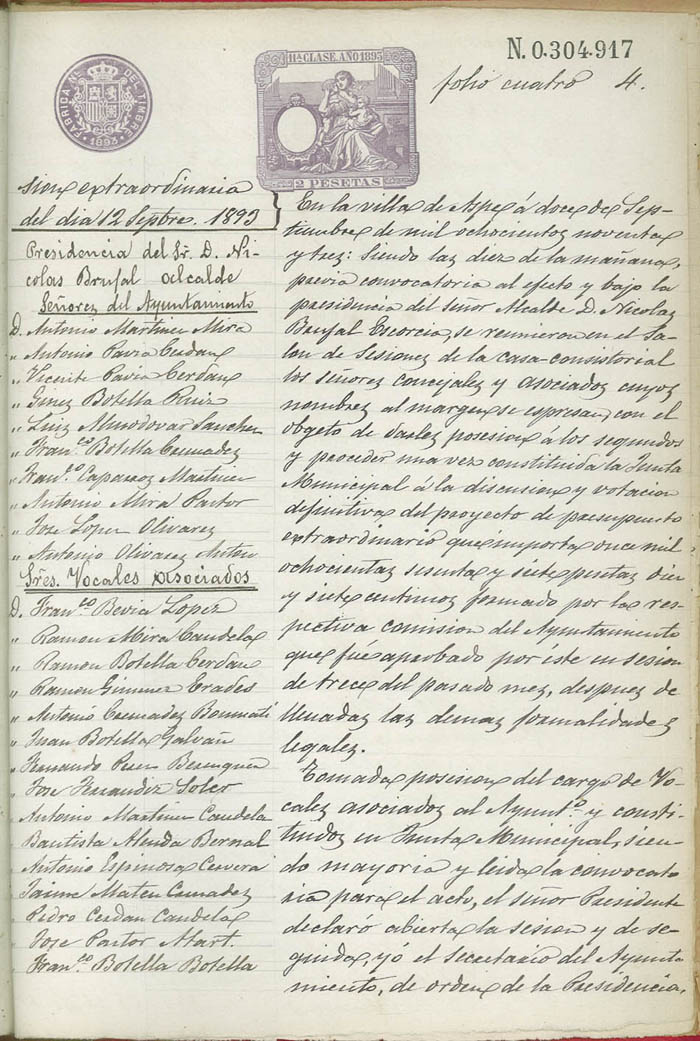 N. 0.304.917
folio cuatro 4.
FABRICA NL. DEL TIMBRE
1893
11ª CLASE. AÑO 1893
2 PESETAS
extraordinaria
del dia 12 Septbre. 1893
Presidencia del Sr. D. Ni-
colas Brufal alcalde
Señores del Ayuntamiento
D. Antonio Martinez Mira
" Antonio Pavia Cerdan
" Vicente Pavia Cerdan
" Ginez Botella Ruiz
" Luiz Almodovar Sanchez
" Fran.co Botella Cremadez
" Fran.co Caparroz Martinez
" Antonio Mira Pastor
" Jose Lopez Olivarez
" Antonio Olivarez Anton
Sres. Vocales asociados
D. Fran.co Bevia Lopez
" Ramon Mira Candela
" Ramon Botella Cerdan
" Ramon Gimenez Erades
" Antonio Cremadez Bonmati
" Juan Botella Galvañ
" Fernando Perez Berenguer
" Jose Fernandiz Soler
" Antonio Martinez Candela
" Bautista Alenda Bernal
" Antonio Espinosa Cervera
" Jaime Mateu Cremadez
" Pedro Cerdan Candela
" Jose Pastor
" Fran.co Botella Botella
En la villa de Aspe á doce de Sep-
tiembre de mil ochocientos noventa
y trez: siendo las diez de la mañana,
previa convocatoria al efecto y bajo la
presidencia del señor Alcalde D. Nicolaz
Brufal Escorcia, se reunieron en el Sa-
lon de Sesionez de la casa-consistorial
los señorez concejalez y asociados cuyoz
nombrez al margen se espresan, con el
obgeto de darlez posesion á los segundos
y proceder una vez constituida la Junta
Municipal á la discusion y votacion
definitiva del proyecto de presupuesto
extraordinario que importa once mil
ochocientaz sesenta y siete pesetaz diez
y siete centimoz formado por la res-
pectiva comision del Ayuntamiento
que fué aprobado por éste en sesion
de trece del pasado mez, despuez de
llenadaz laz demaz formalidadez
legalez.
Tomada posesion del cargo de Vo-
calez asociados al Ayunt.o y consti-
tuidoz en Junta Municipal, sien-
do mayoria y leida la convocato
ria para el acto, el señor Presidente
declaró abierta la sesion y de se-
guida, yó el secretario del Ayunta
miento, de orden de la Presidencia,